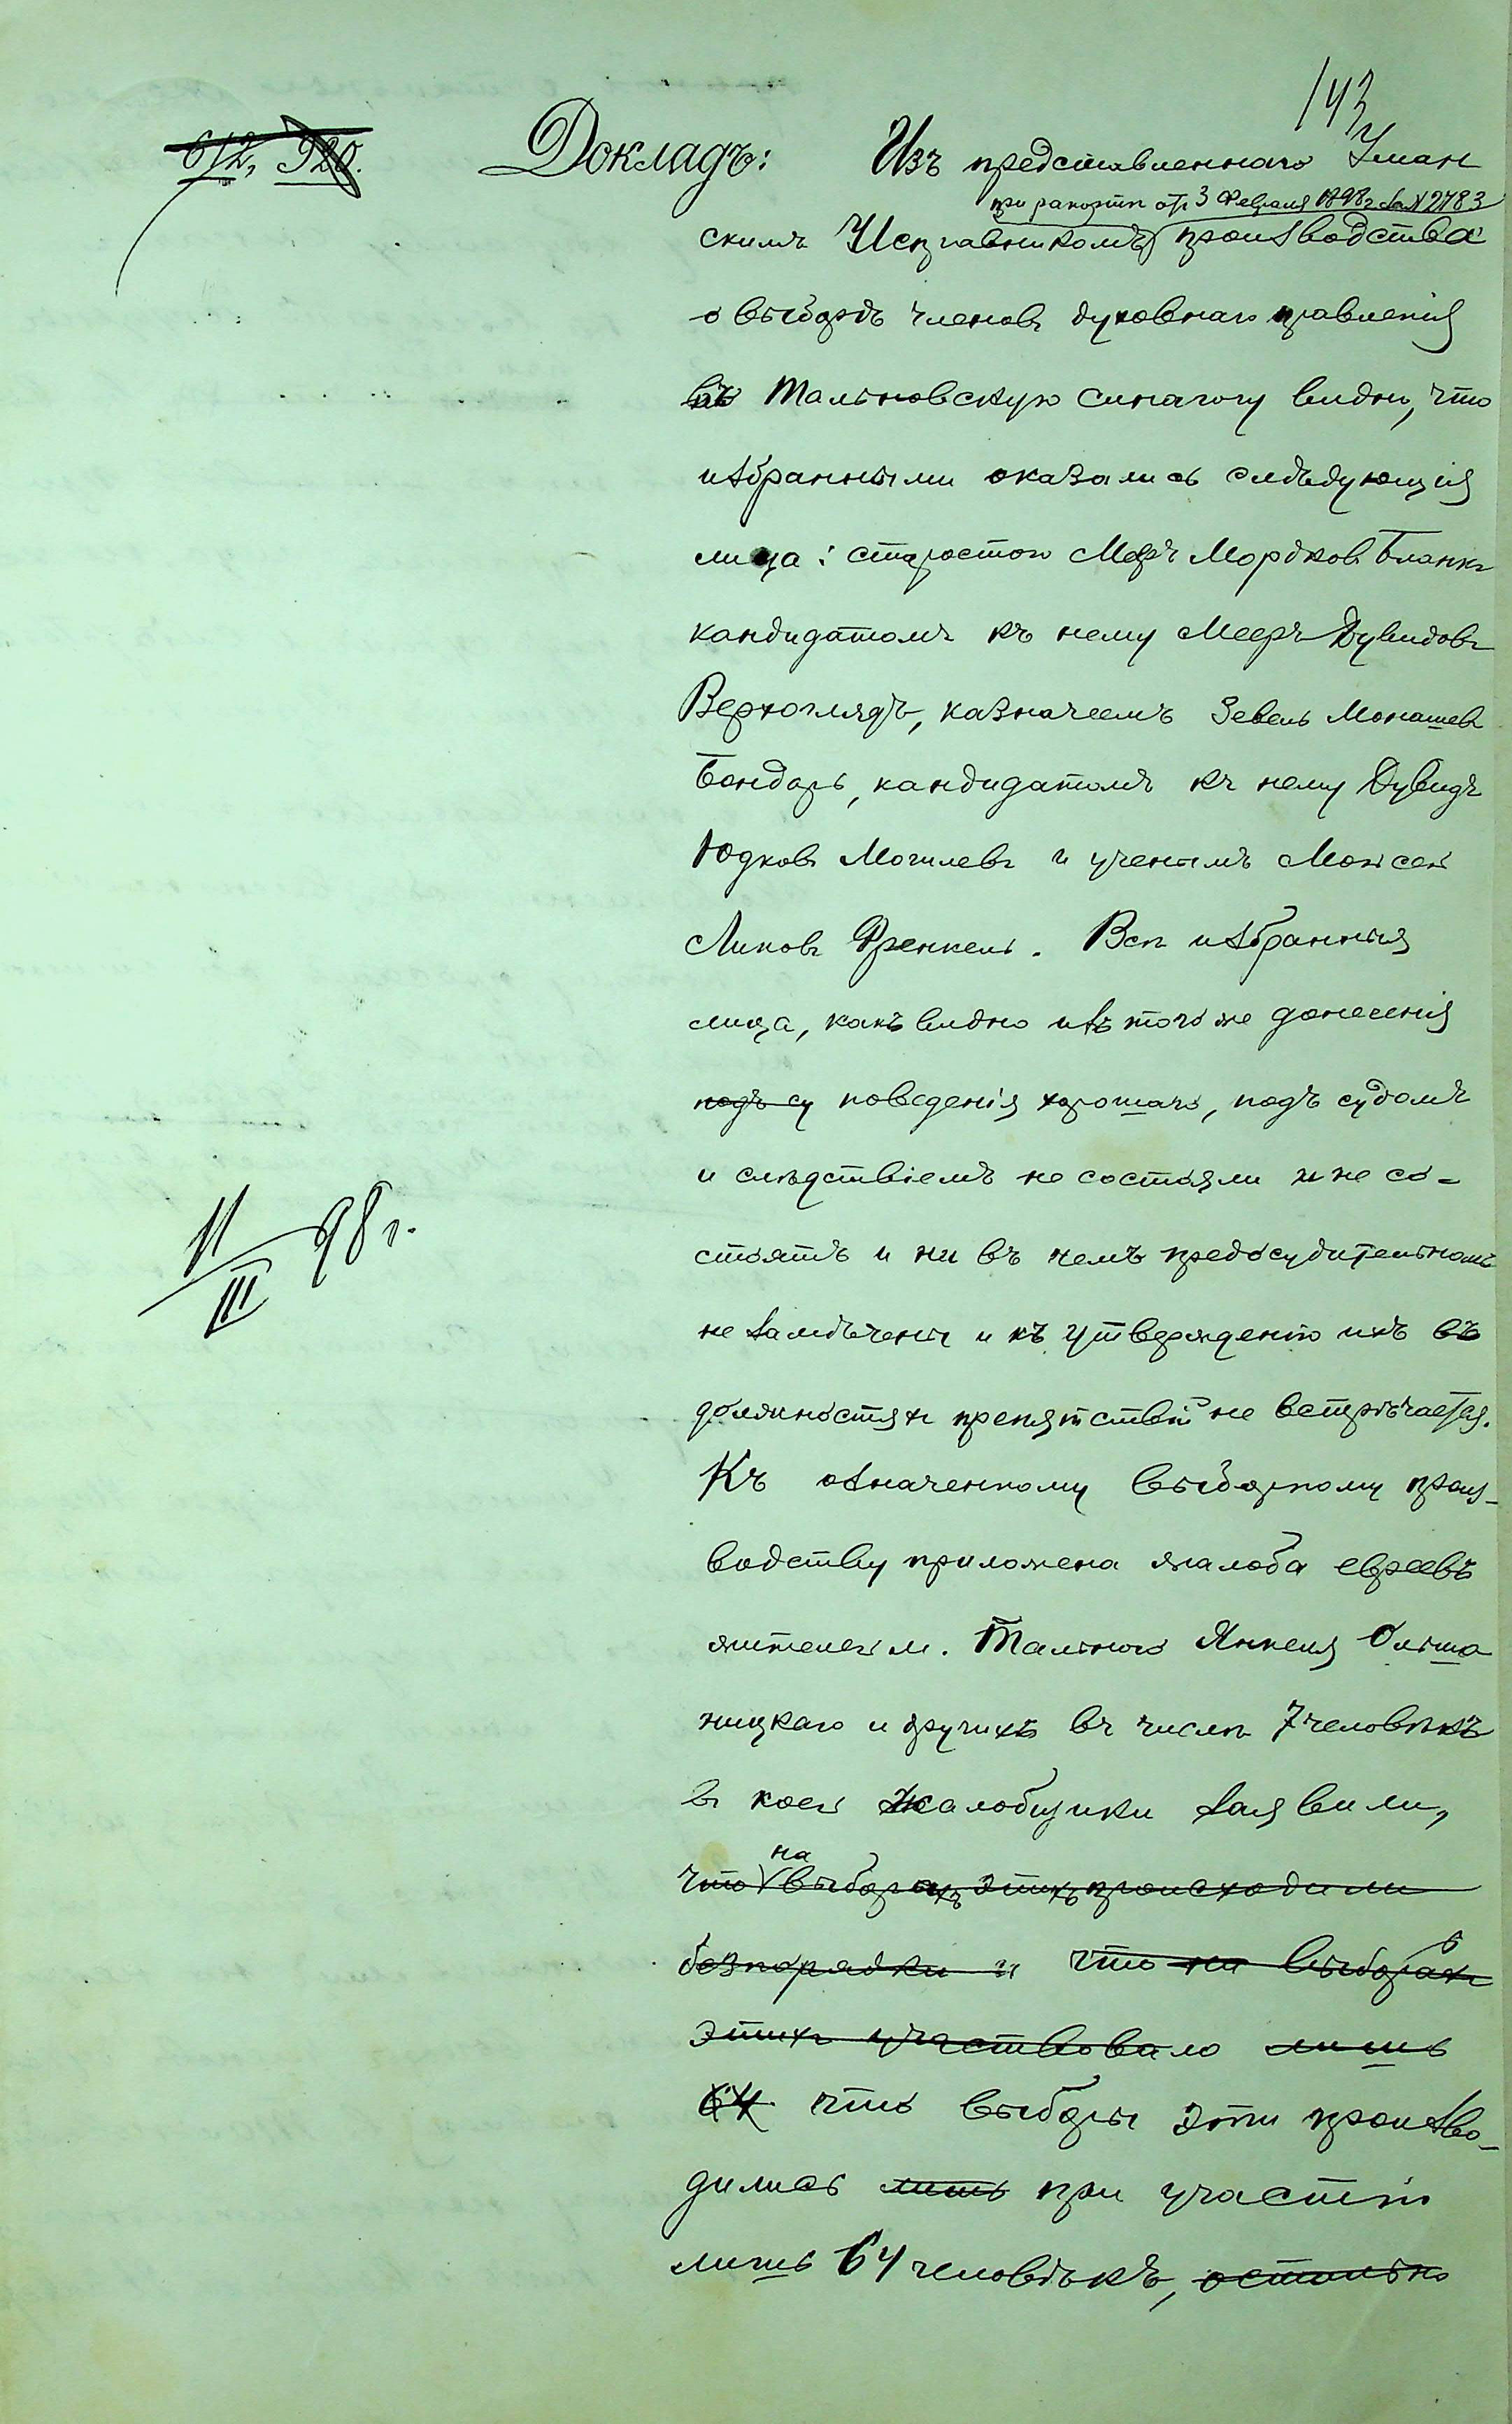 143
612, 920.
Докладъ: Изъ представленнаго Уман
при рапортѣ отъ 3 Февраля 1898 г. за № 2783
скимъ Исправникомъ производства
о выборѣ членовъ духовнаго правленія
въ Тальновскую синагогу видно, что
избранными оказались слѣдующія
лица: старостою Меръ Мордковъ Бланкъ
кандидатомъ къ нему Мееръ Дувидовъ
Верхоглядъ, казначеемъ Зевель Монашевъ
Бондарь, кандидатомъ къ нему Дувидъ
Юдковъ Могилевъ и ученымъ Мойсей
Липовъ Френкель. Всѣ избранныя
лица, какъ видно изъ того же донесенія
подъ су поведенія хорошаго, подъ судомъ
и слѣдствіемъ не состояли и не со-
стоятъ и ни въ чемъ предосудительномъ
не замѣчены и къ утвержденію ихъ въ
должностяхъ препятствій не встрѣчается.
Къ означенному выборному произ-
водству приложена жалоба евреевъ
жителей м. Тальнаго Янкеля Ольша
ницкаго и другихъ въ числѣ 7 человѣкъ
въ коей жалобщики заявили,
на
что выборахъ этихъ происходили
безпорядки и что на выборахъ
этихъ участвовало лишь
64 что выборы эти произво-
дились лишь при участіи
лишь 64 человѣкъ, остально
11/III 98 г.